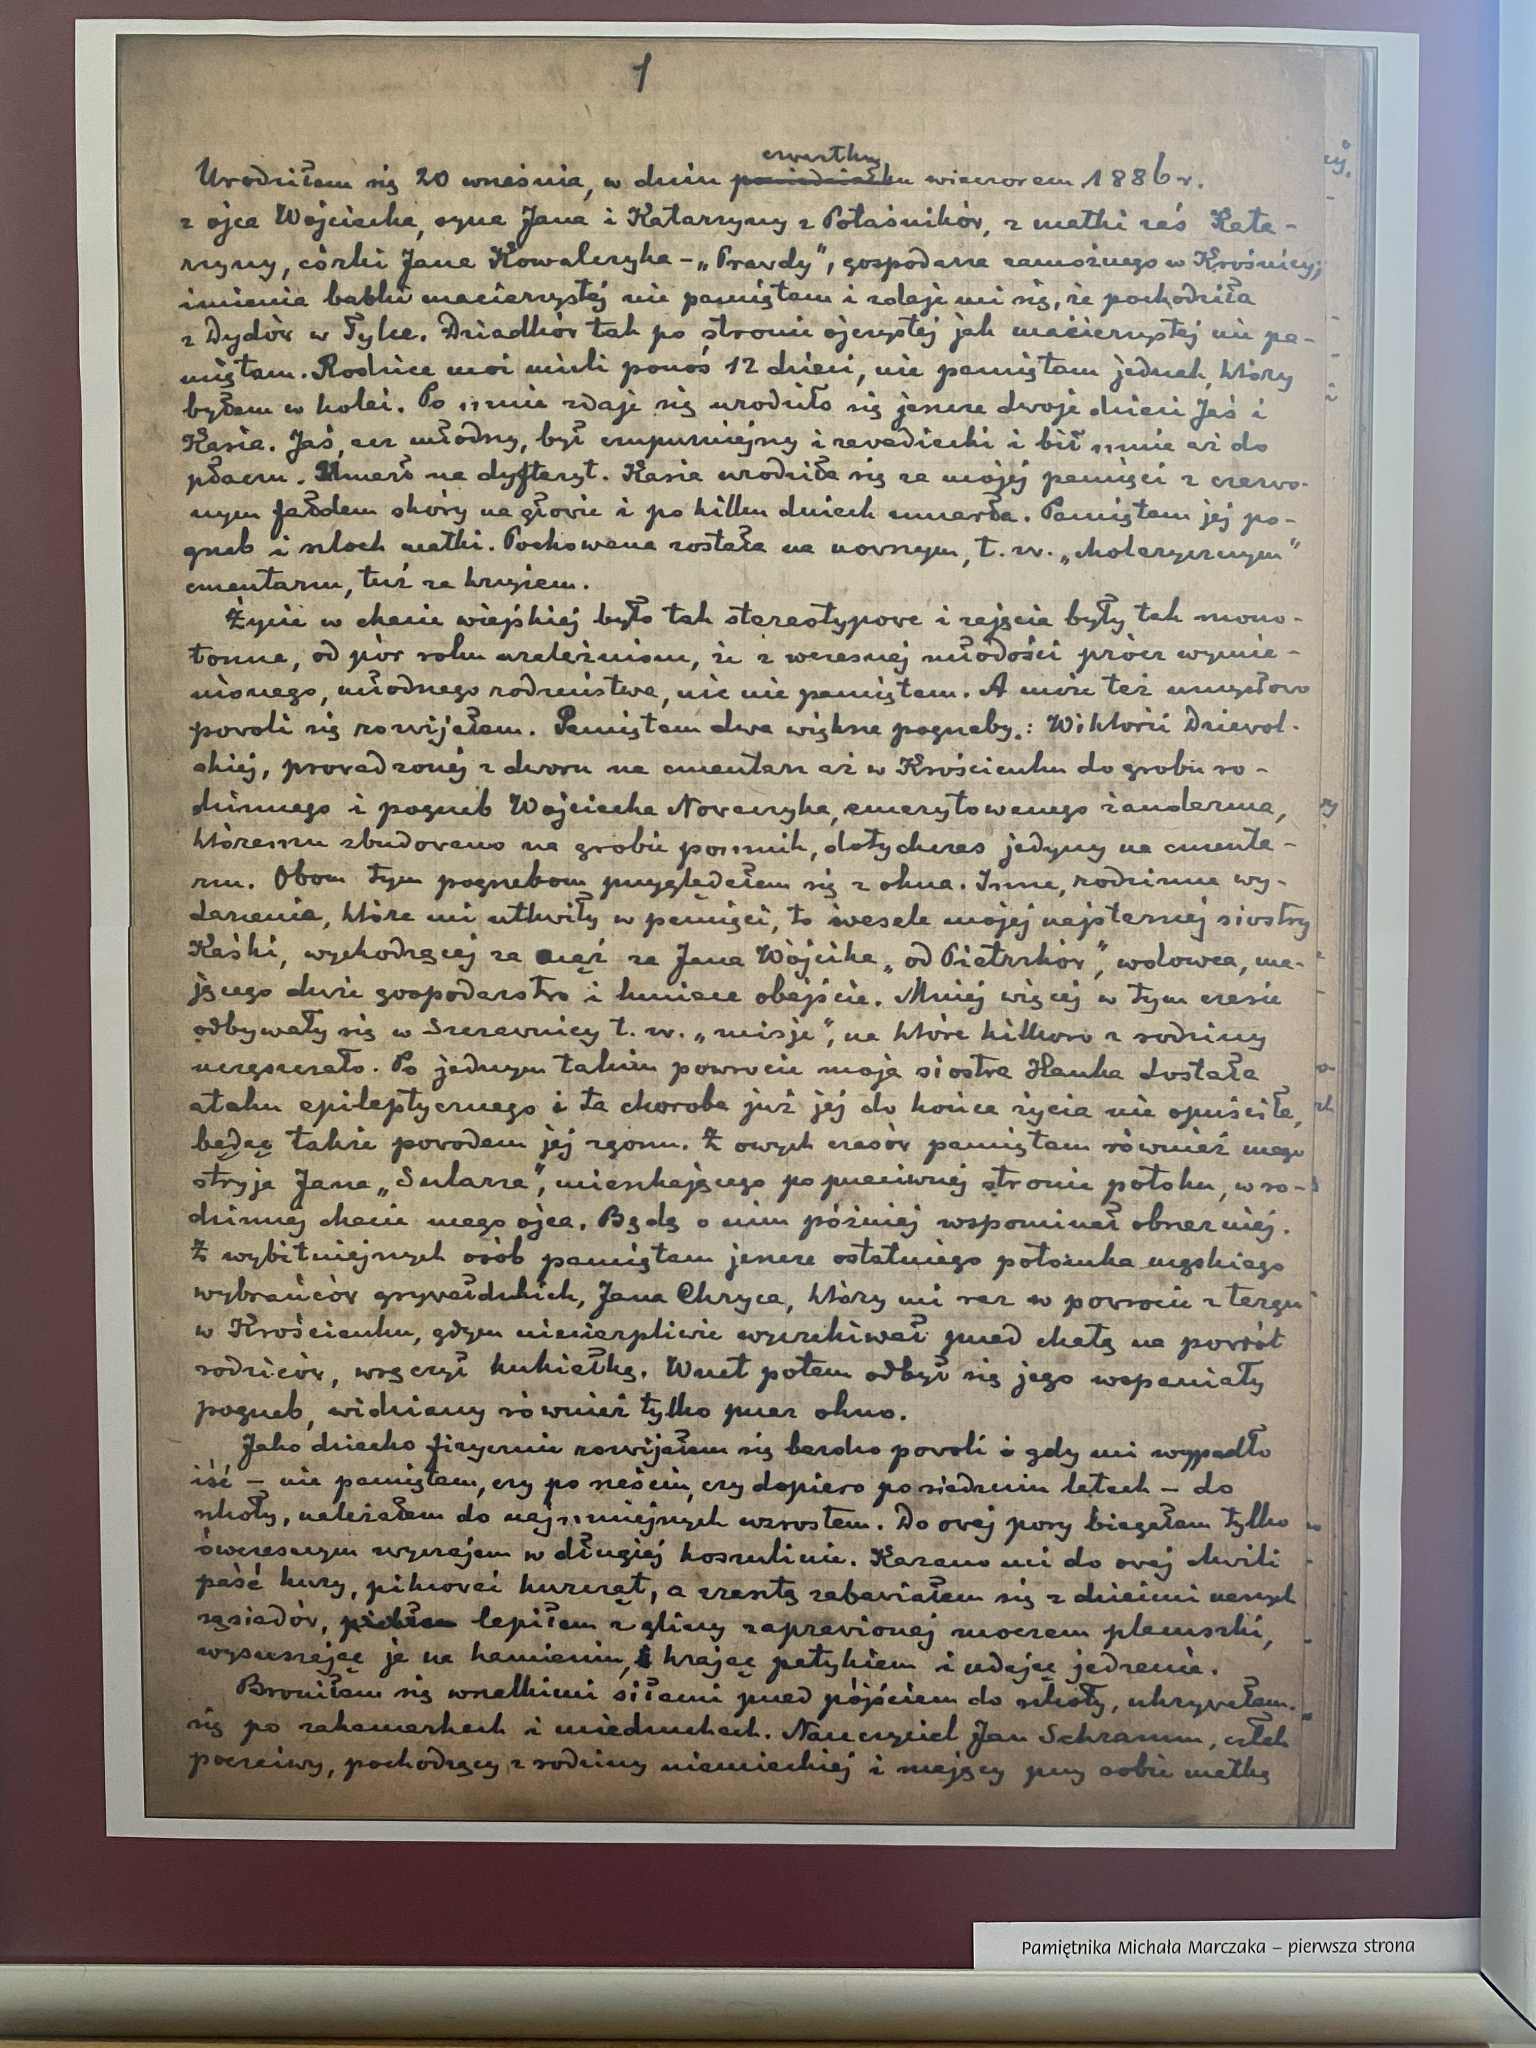 1
czwartku
Urodziłem się 20 września, w dniu poniedziałku wieczorem 1886 r.
z ojca Wojciecha, syna Jana i Katarzyny z Potaśników, z matki zaś Kata-
rzyny, córki Jana Kowalczyka – „Prawdy", gospodarza zamożnego w Krośnicy;
imienia babki macierzystej nie pamiętam i zdaje mi się, że pochodziła
z Dydów w Tylce. Dziadków tak po stronie ojczystej jak macierzystej nie pa-
miętam. Rodzice moi mieli ponoś 12 dzieci, nie pamiętam jednak, który
byłem w kolei. Po mnie zdaje się urodziło się jeszcze dwoje dzieci Jaś i
Kasia. Jaś, acz młodszy, był czupurniejszy i zawadiacki i bił mnie aż do
płaczu. Umarł na dyfteryt. Kasia urodziła się za mojej pamięci z czerwo-
nym fałdem skóry na głowie i po kilku dniach umarła. Pamiętam jej po-
grzeb i szloch matki. Pochowana została na nowszym, t. zw. „cholerycznym"
cmentarzu, tuż za krzyżem.
Życie w chacie wiejskiej było tak stereotypowe i zajęcia były tak mono-
tonne, od pór roku uzależnione, że z wczesnej młodości prócz wymie-
nionego, młodszego rodzeństwa, nic nie pamiętam. A może też umysłowo
powoli się rozwijałem. Pamiętam dwa większe pogrzeby: Wiktorii Dziewol-
skiej, prowadzonej z dworu na cmentarz aż w Krościenku do grobu ro-
dzinnego i pogrzeb Wojciecha Nowaczyka, emerytowanego żandarma,
któremu zbudowano na grobie pomnik, dotychczas jedyny na cmenta-
rzu. Obom tym pogrzebom przyglądałem się z okna. Inne, rodzinne wy-
darzenia, które mi utkwiły w pamięci, to wesele mojej najstarszej siostry
Kaśki, wychodzącej za mąż za Jana Wójcika „od Pietrzków", wdowca, ma-
jącego duże gospodarstwo i kmiece obejście. Mniej więcej w tym czasie
odbywały się w Szczawnicy t. zw. „misje", na które kilkoro z rodziny
uczęszczało. Po jednym takim powrocie moja siostra Hanka dostała
ataku epileptycznego i ta choroba już jej do końca życia nie opuściła,
będąc także powodem jej zgonu. Z owych czasów pamiętam również mego
stryja Jana „Sularza", mieszkającego po przeciwnej stronie potoku, w ro-
dzinnej chacie mego ojca. Będę o nim później wspominał obszerniej.
Z wybitniejszych osób pamiętam jeszcze ostatniego potomka męskiego
wybrańców grywałdzkich, Jana Chryca, który mi raz w powrocie z targu
w Krościenku, gdym niecierpliwie wyczekiwał przed chatą na powrót
rodziców, wręczył kukiełkę. Wnet potem odbył się jego wspaniały
pogrzeb, widziany również tylko przez okno.
Jako dziecko fizycznie rozwijałem się bardzo powoli i gdy mi wypadło
iść – nie pamiętam, czy po sześciu, czy dopiero po siedmiu latach – do
szkoły, należałem do najmniejszych wzrostem. Do owej pory biegałem tylko
ówczesnym zwyczajem w długiej koszulinie. Kazano mi do owej chwili
paść kury, pilnować kurcząt, a zresztą zabawiałem się z dziećmi naszych
sąsiadów, lepiłem z gliny zaprawionej moczem placuszki,
wysuszając je na kamieniu, krając patykiem i udając jedzenie.
Broniłem się wszelkimi siłami przed pójściem do szkoły, ukrywałem
się po zakamarkach i miedzuchach. Nauczyciel Jan Schramm, człek
poczciwy, pochodzący z rodziny niemieckiej i mający przy sobie matkę
Pamiętnika Michała Marczaka – pierwsza strona